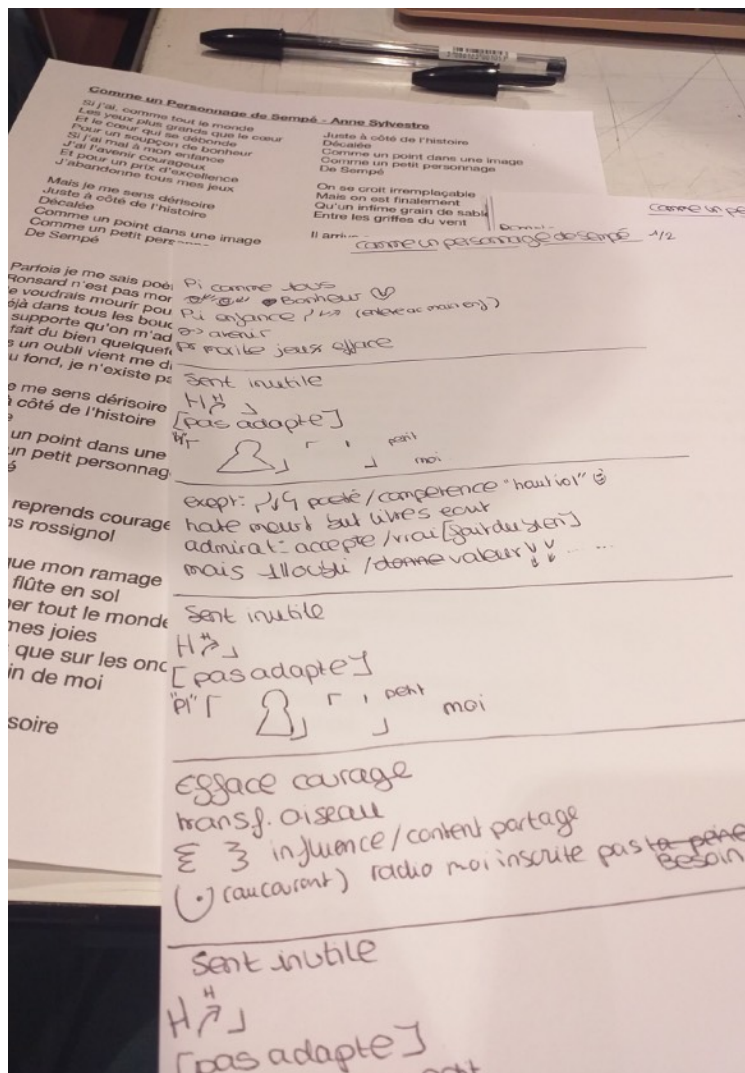 Comme un Personnage de Sempé - Anne Sylvestre
Si j'ai, comme tout le monde
Les yeux plus grands que le cœur
Et le cœur qui se débonde
Pour un soupçon de bonheur
Si j'ai mal à mon enfance
J'ai l'avenir courageux
Et pour un prix d'excellence
J'abandonne tous mes jeux
Mais je me sens dérisoire
Juste à côté de l'histoire
Décalée
Comme un point dans une image
Comme un petit pers
De Sempé
Parfois je me sais poè
Ronsard n'est pas mor
e voudrais mourir pou
éjà dans tous les bouq
supporte qu'on m'ad
fait du bien quelquef
s un oubli vient me di
u fond, je n'existe pa
e me sens dérisoire
à côté de l'histoire
un point dans une
un petit personnag
reprends courage
ns rossignol
que mon ramage
flûte en sol
er tout le monde
mes joies
que sur les ond
in de moi
soire
Juste à côté de l'histoire
Décalée
Comme un point dans une image
Comme un petit personnage
De Sempé
On se croit irremplaçable
Mais on est finalement
Qu'un infime grain de sable
Entre les griffes du vent
Il arrive
comme un pe
comme un personnage de sempé 1/2
Pi comme tous
Bonheur
Pi enfance
avenir
jeux efface
sent inutile
H J
[pas adapte]
petit
moi
exept: poeté/competence "haut iol"
hate meurt but livres ecrit
admirat: accepte/vrai [fait du bien]
mais 1 l'oubli /donne valeur
sent inutile
H J
[pas adapte]
"Pi" petit moi
Efface courage
transf. oiseau
influence/content partage
(au courant) radio moi inscrite pas la peine
Besoin
sent inutile
H J
[pas adapte]
petit